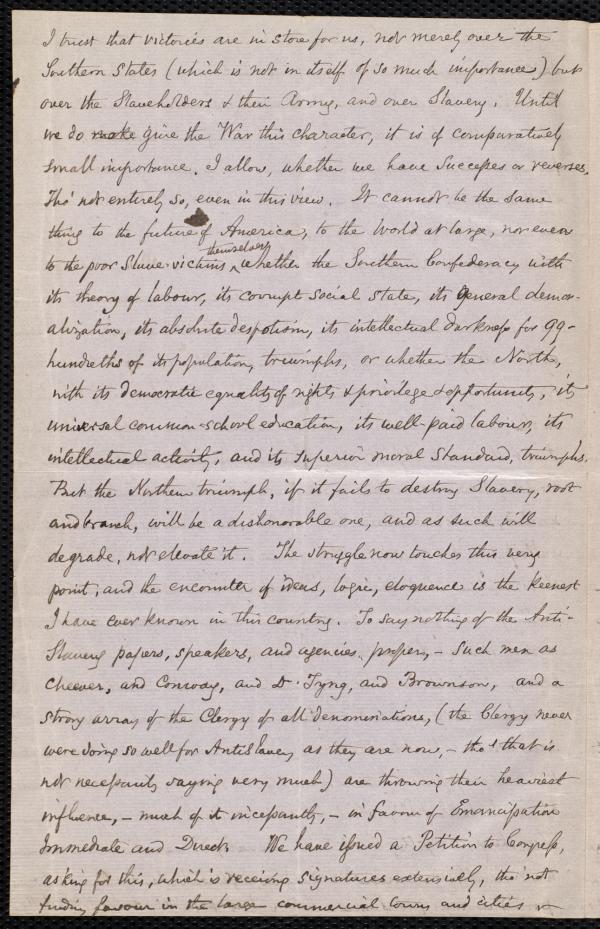 I trust that victories are in store for us, not merely over the
Southern States (which is not in itself of so much importance) but
over the Slaveholders & their Army, and over Slavery. Until
we do make give the War this character, it is of comparatively
small importance, I allow, whether we have Successes or reverses,
Tho' not entirely so, even in this view. It cannot be the same
thing to the future of America, to the world at large, nor even
themselves
to the poor Slave-victims, whether the Southern Confederacy with
its theory of labour, its corrupt social state, its general demor-
alization, its absolute despotism, its intellectual darkness for 99-
hundredths of its population, triumphs, or whether the North,
with its democratic equality of rights & privilege & opportunity, its
universal common-school education, its well-paid labour, its
intellectual activity, and its superior moral standard, triumphs.
But the Northern triumph, if it fails to destroy Slavery, root
and branch, will be a dishonorable one, and as such will
degrade, not elevate it. The struggle now touches this very
point; and the encounter of ideas, logic, eloquence is the keenest
I have ever known in this country. To say nothing of the Anti-
Slavery papers, speakers, and agencies, proper, – such men as
Cheever, and Conway, and Dr. Tyng, and Brownson, and a
strong array of the Clergy of all denominations, (the Clergy never
were doing so well for Antislavery as they are now, – tho' that is
not necessarily saying very much) are throwing their heaviest
influence, – much of it incessantly, – in favour of Emancipation
Immediate and Direct. We have issued a Petition to Congress,
asking for this, which is receiving signatures extensively, tho' not
finding favour in the large commercial towns and cities &